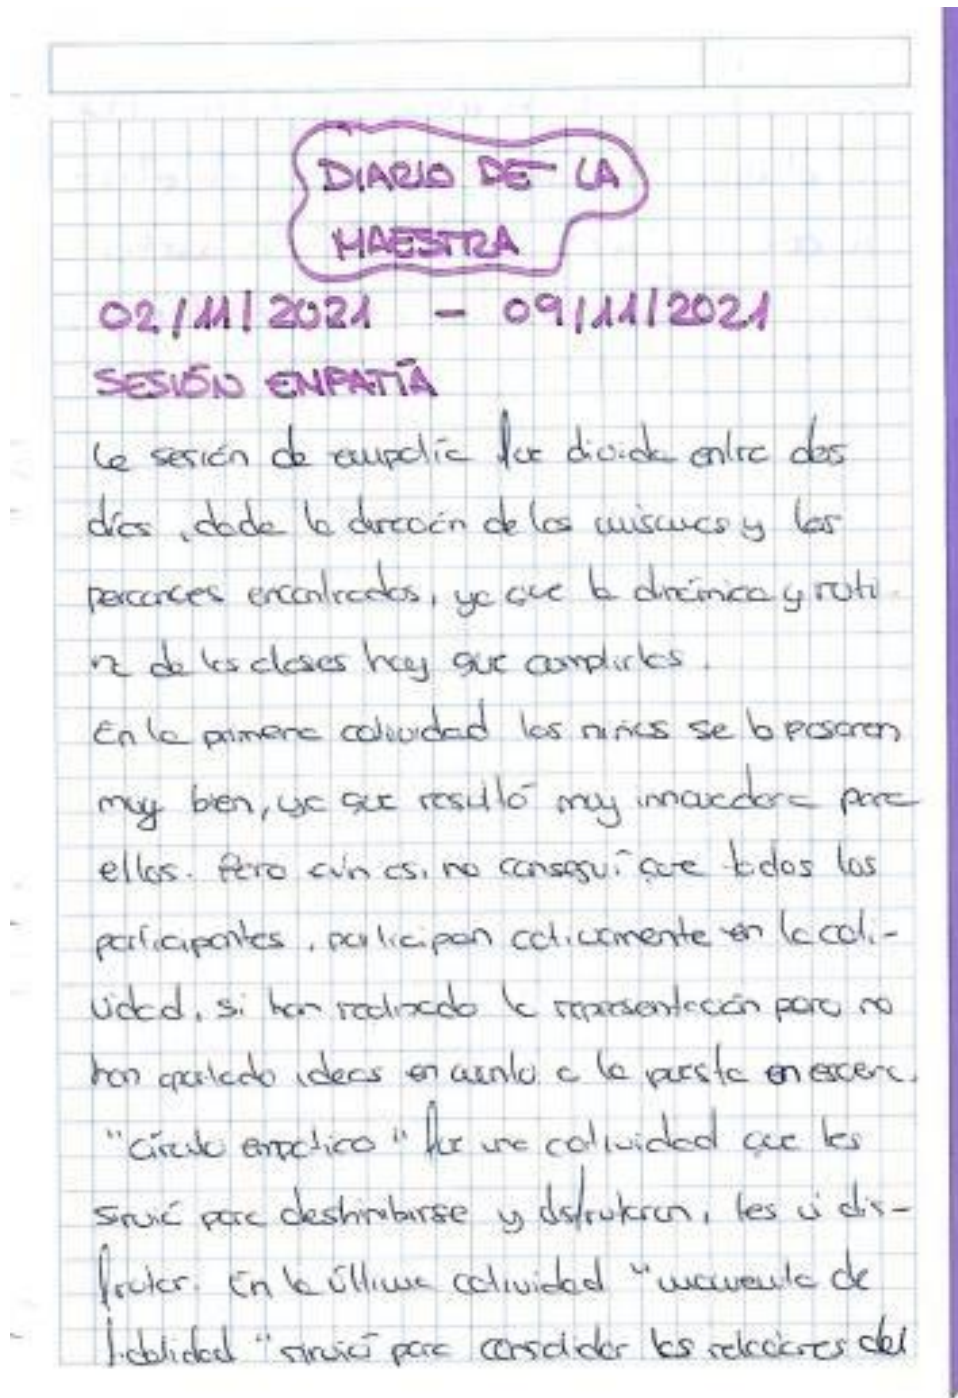 DIARIO DE LA
MAESTRA
02/11/2021 - 09/11/2021
SESIÓN EMPATÍA
La sesión de empatía fue divida entre dos
días, dada la duración de los mismos y los
percances encontrados, ya que la dinámica y ruti-
na de las clases hay que cumplirlas.
En la primera actividad los niños se lo pasaron
muy bien, ya que resultó muy innovadora para
ellos. Pero aún así, no conseguí que todos los
participantes, participan activamente en la acti-
vidad, si han realizado la representación pero no
han aportado ideas en cuanto a la puesta en escena.
"círculo empático" fue una actividad que les
sirvió para deshinibirse y disfrutaron, les vi dis-
frutar. En la última actividad "momento de
habilidad" sirvió para consolidar las relaciones del